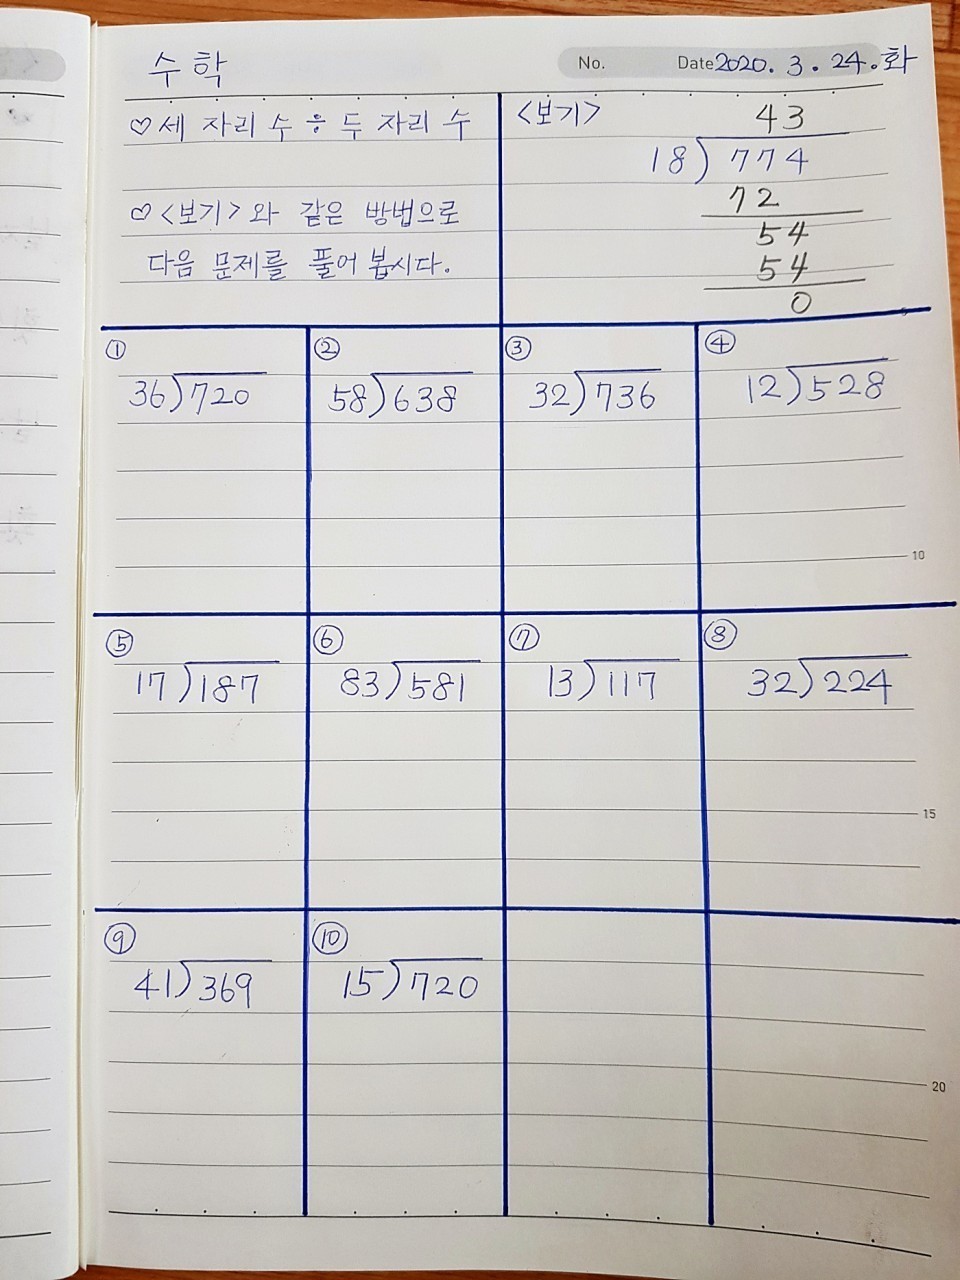 수학
No.
Date 2020. 3. 24. 화
♡ 세 자리 수 ÷ 두 자리 수
♡ <보기>와 같은 방법으로
다음 문제를 풀어 봅시다.
<보기>
43
18)774
72
54
54
0
① ② ③ ④
36)720 58)638 32)736 12)528
10
⑤ ⑥ ⑦ ⑧
17)187 83)581 13)117 32)224
15
⑨ ⑩
41)369 15)720
20